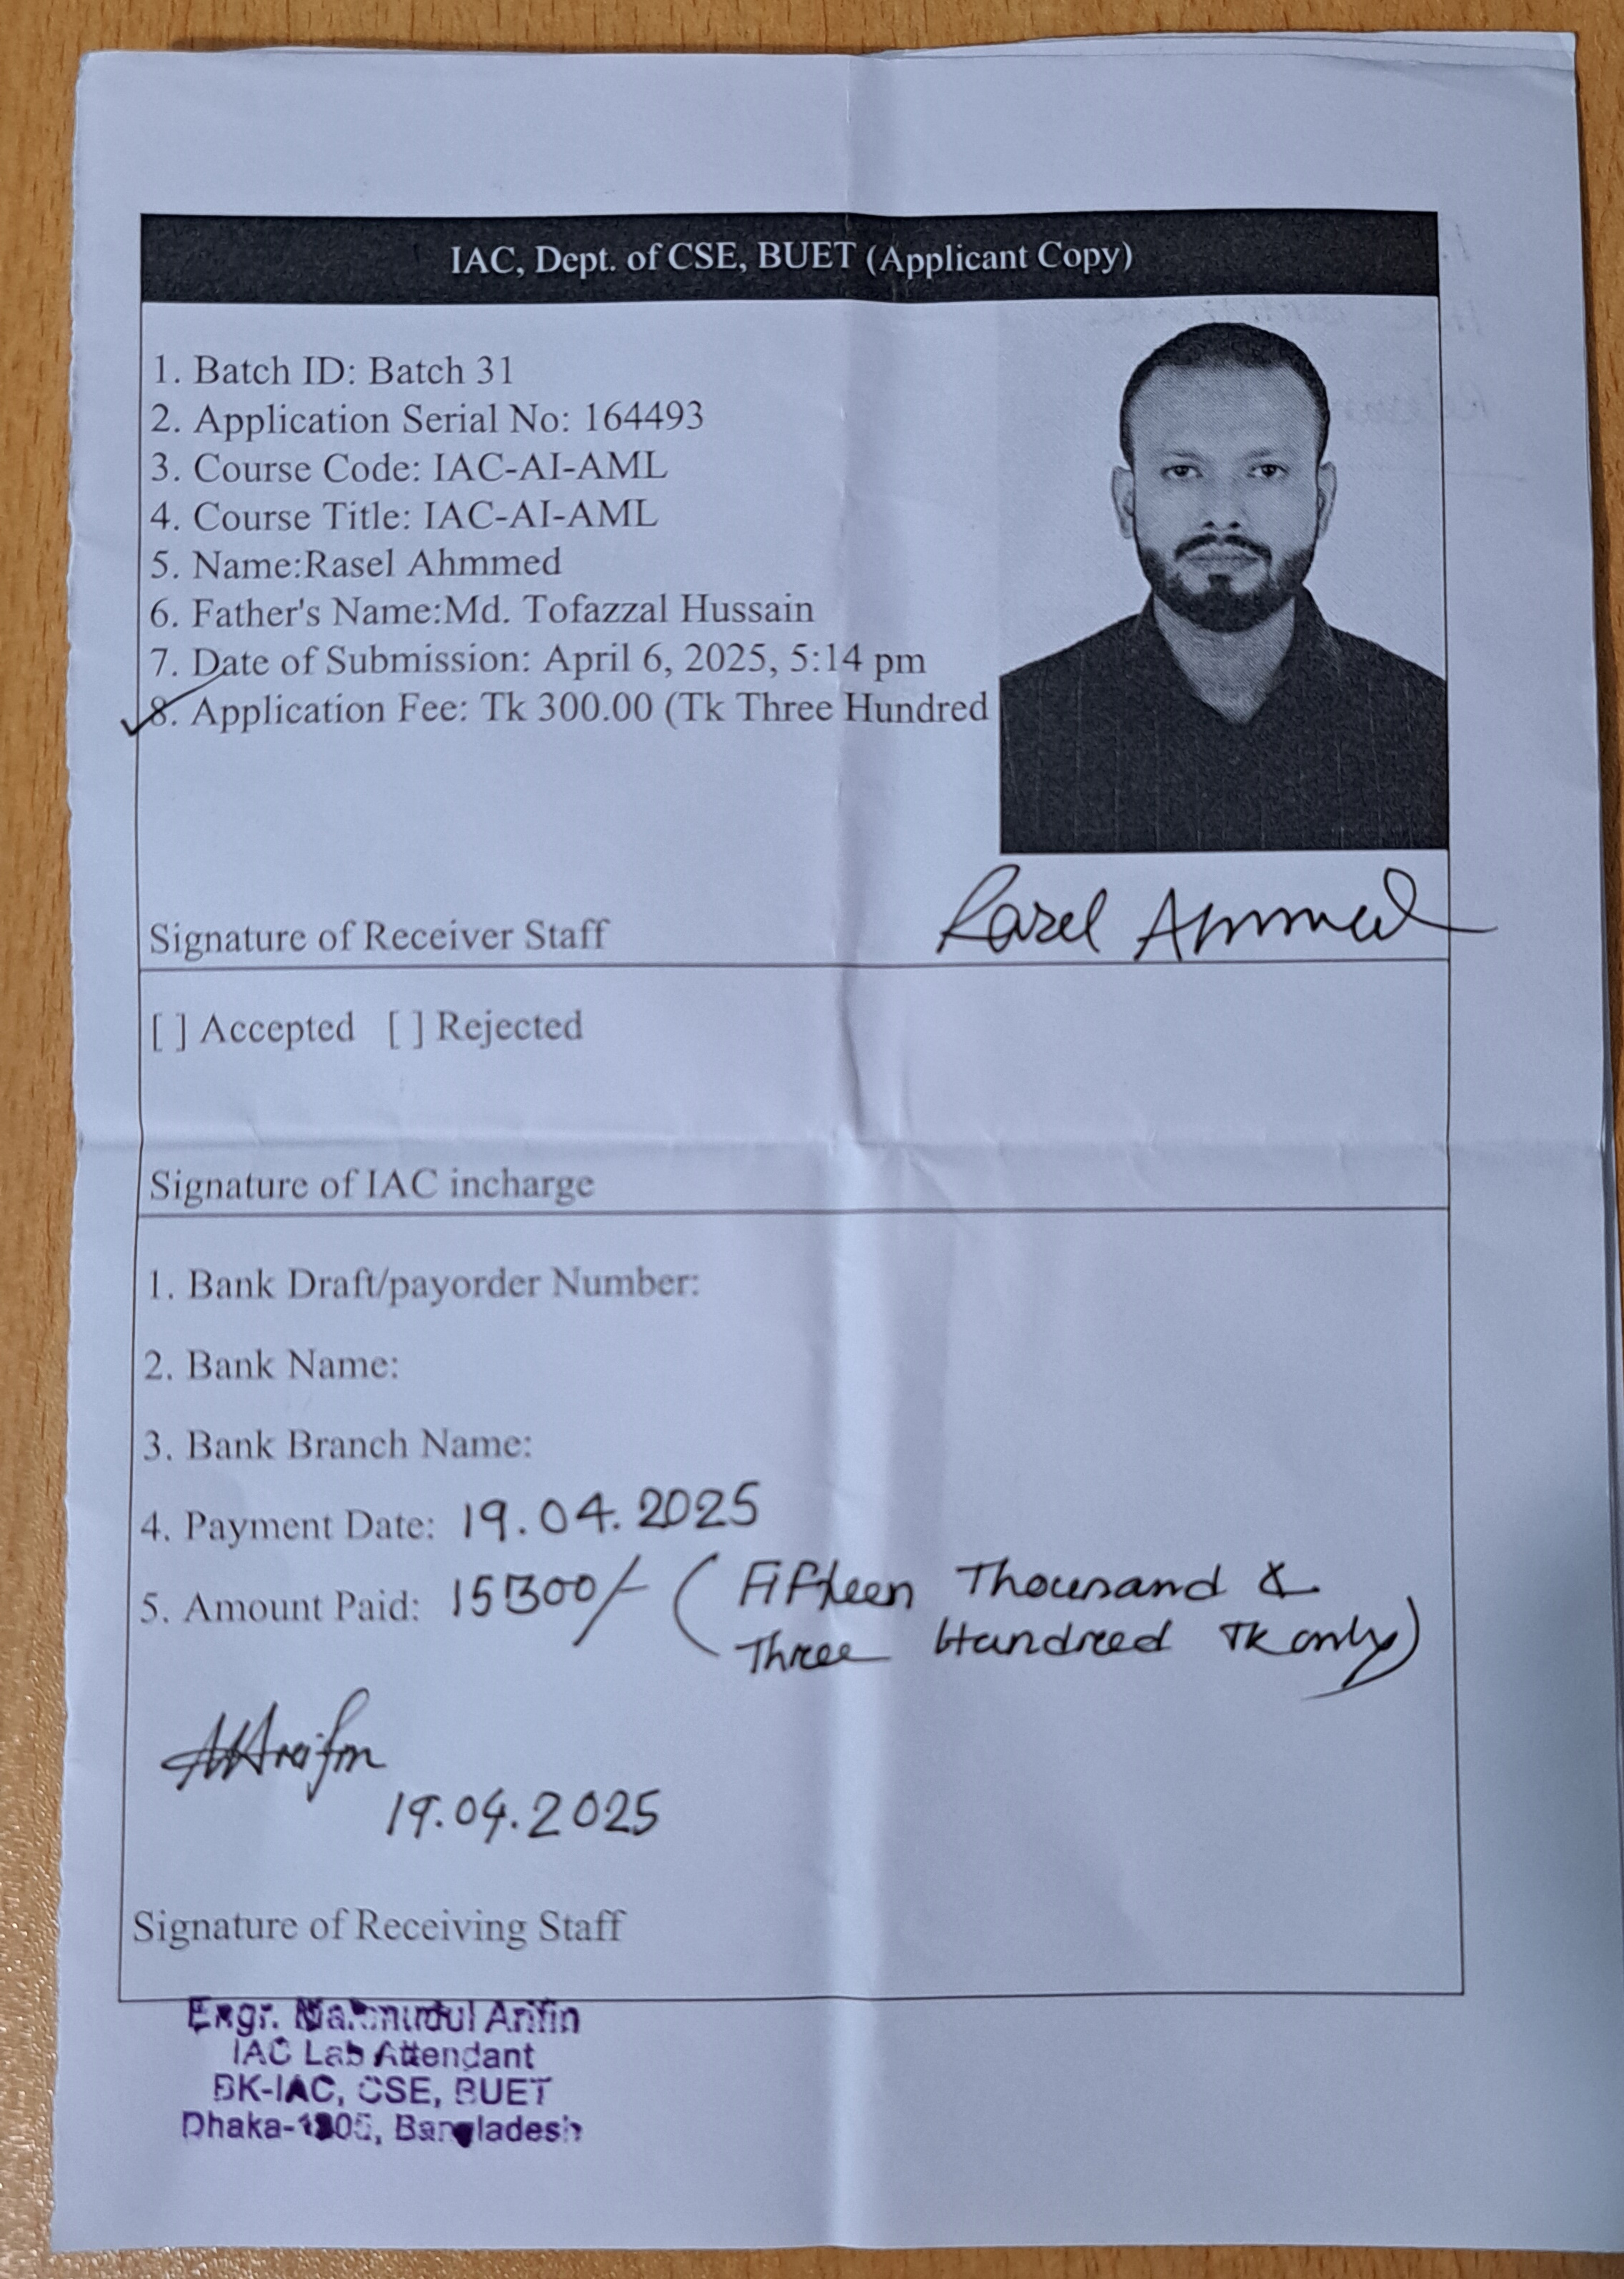 IAC, Dept. of CSE, BUET (Applicant Copy)
1. Batch ID: Batch 31
2. Application Serial No: 164493
3. Course Code: IAC-AI-AML
4. Course Title: IAC-AI-AML
5. Name:Rasel Ahmmed
6. Father's Name:Md. Tofazzal Hussain
7. Date of Submission: April 6, 2025, 5:14 pm
8. Application Fee: Tk 300.00 (Tk Three Hundred
Rasel Ahmmed
Signature of Receiver Staff
[ ] Accepted [ ] Rejected
Signature of IAC incharge
1. Bank Draft/payorder Number:
2. Bank Name:
3. Bank Branch Name:
4. Payment Date: 19.04.2025
5. Amount Paid: 15300/- (Fifteen Thousand &
Three Hundred Tk only)
19.04.2025
Signature of Receiving Staff
Engr. Mahmudul Arifin
IAC Lab Attendant
BK-IAC, CSE, BUET
Dhaka-1205, Bangladesh